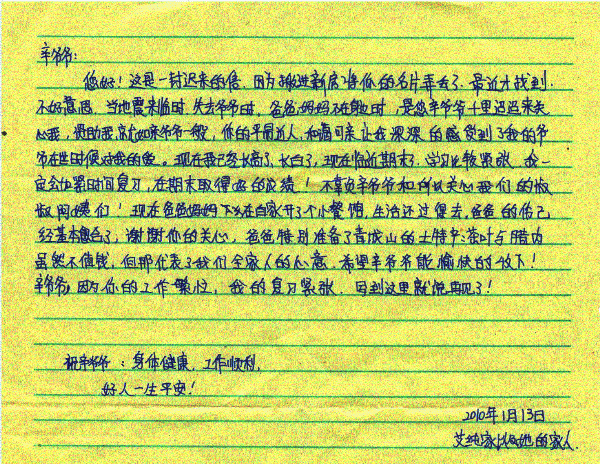 辛爷爷:
您好! 这是一封迟来的信, 因为搬进新房了将你的名片弄丢了. 最近才找到.
不好意思. 当地震来临时. 失去爷爷时, 爸爸妈妈不在身边时, 是您辛爷爷千里迢迢来关
心我, 资助我就如亲爷爷一般, 你的平易近人, 和蔼可亲让我深深的感受到了我的爷
爷在世时候对我的爱. 现在我已经长高了, 长白了, 现在临近期末了. 学习比较紧张, 我一
定会加紧时间复习, 在期末取得好的成绩! 不辜负辛爷爷和所以关心我们的叔
叔阿姨们! 现在爸爸妈妈下乡在自家开了个小餐馆, 生活还过得去, 爸爸的伤已
经基本愈合了, 谢谢你的关心, 爸爸特别准备了青城山的土特产茶叶与腊肉
虽然不值钱, 但那代表了我们全家人的心意. 希望辛爷爷能愉快的收下!
辛爷爷, 因为你的工作繁忙, 我的复习紧张, 写到这里就说再见了!
祝辛爷爷: 身体健康, 工作顺利,
好人一生平安!
2010年1月13日
艾纯家以及她的家人.